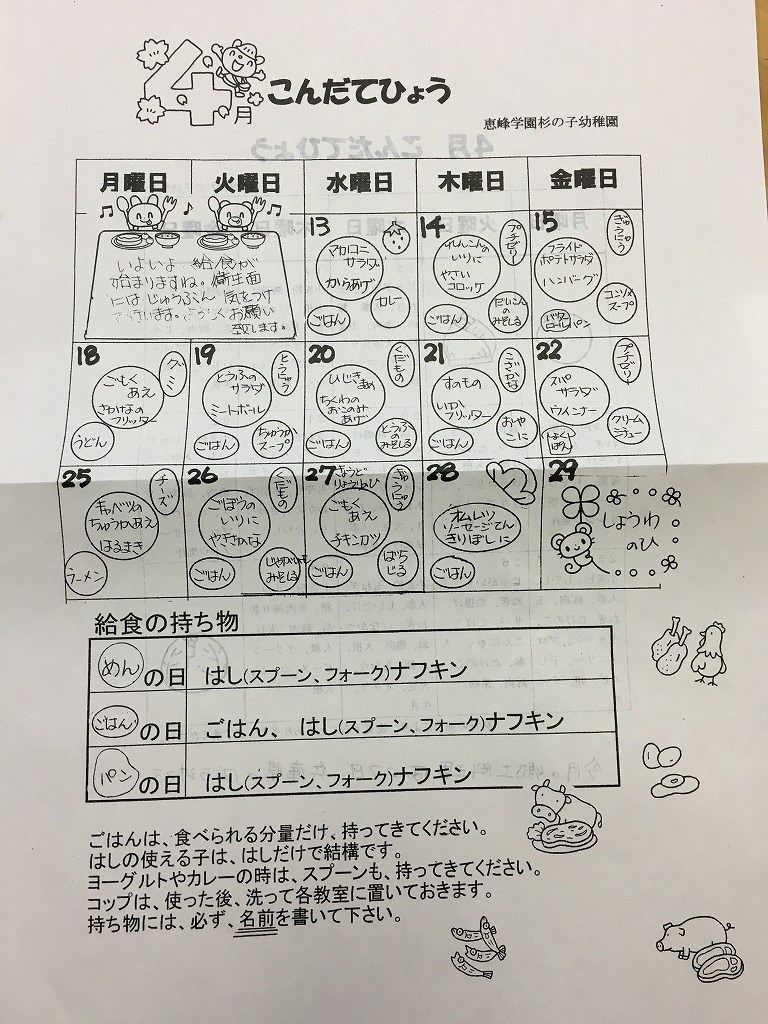 4月 こんだてひょう
恵峰学園杉の子幼稚園
月曜日 火曜日 水曜日 木曜日 金曜日
いよいよ 給食が
始まりますね。衛生面
にはじゅうぶん 気をつけ
て行います。よろしくお願い
致します。
13
マカロニ
サラダ
からあげ
カレー
ごはん
14
プチゼリー
いりに
やさい
コロッケ
ごはん
だいこん
のみそしる
15
ぎゅうにゅう
フライド
ポテトサラダ
ハンバーグ
コンソメ
スープ
バター
ロールパン
18
グミ
ごもく
あえ
さかなの
フリッター
うどん
19
とうにゅう
とうふの
サラダ
ミートボール
ごはん
ちゅうか
スープ
20
くだもの
ひじき
ちくわの
おこのみ
あげ
ごはん
とうふ
の
みそしる
21
こざかな
すのもの
いか
フリッター
ごはん
おやこに
22
プチゼリー
スパ
サラダ
ウインナー
クリーム
シチュー
しょくぱん
25
チーズ
キャベツの
ちゅうかあえ
はるまき
ラーメン
26
くだもの
ごぼうの
いりに
やきざかな
ごはん
じゃがいも
みそしる
27
きょうど
りょうりのひ
ぎゅうにゅう
ごもく
あえ
チキンカツ
ごはん
じる
28
オムレツ
ソーセージてん
きりぼしに
ごはん
29
しょうわ
のひ
給食の持ち物
めんの日 はし(スプーン、フォーク)ナフキン
ごはんの日 ごはん、 はし(スプーン、フォーク)ナフキン
パンの日 はし(スプーン、フォーク)ナフキン
ごはんは、食べられる分量だけ、持ってきてください。
はしの使える子は、はしだけで結構です。
ヨーグルトやカレーの時は、スプーンも、持ってきてください。
コップは、使った後、洗って各教室に置いておきます。
持ち物には、必ず、名前を書いて下さい。